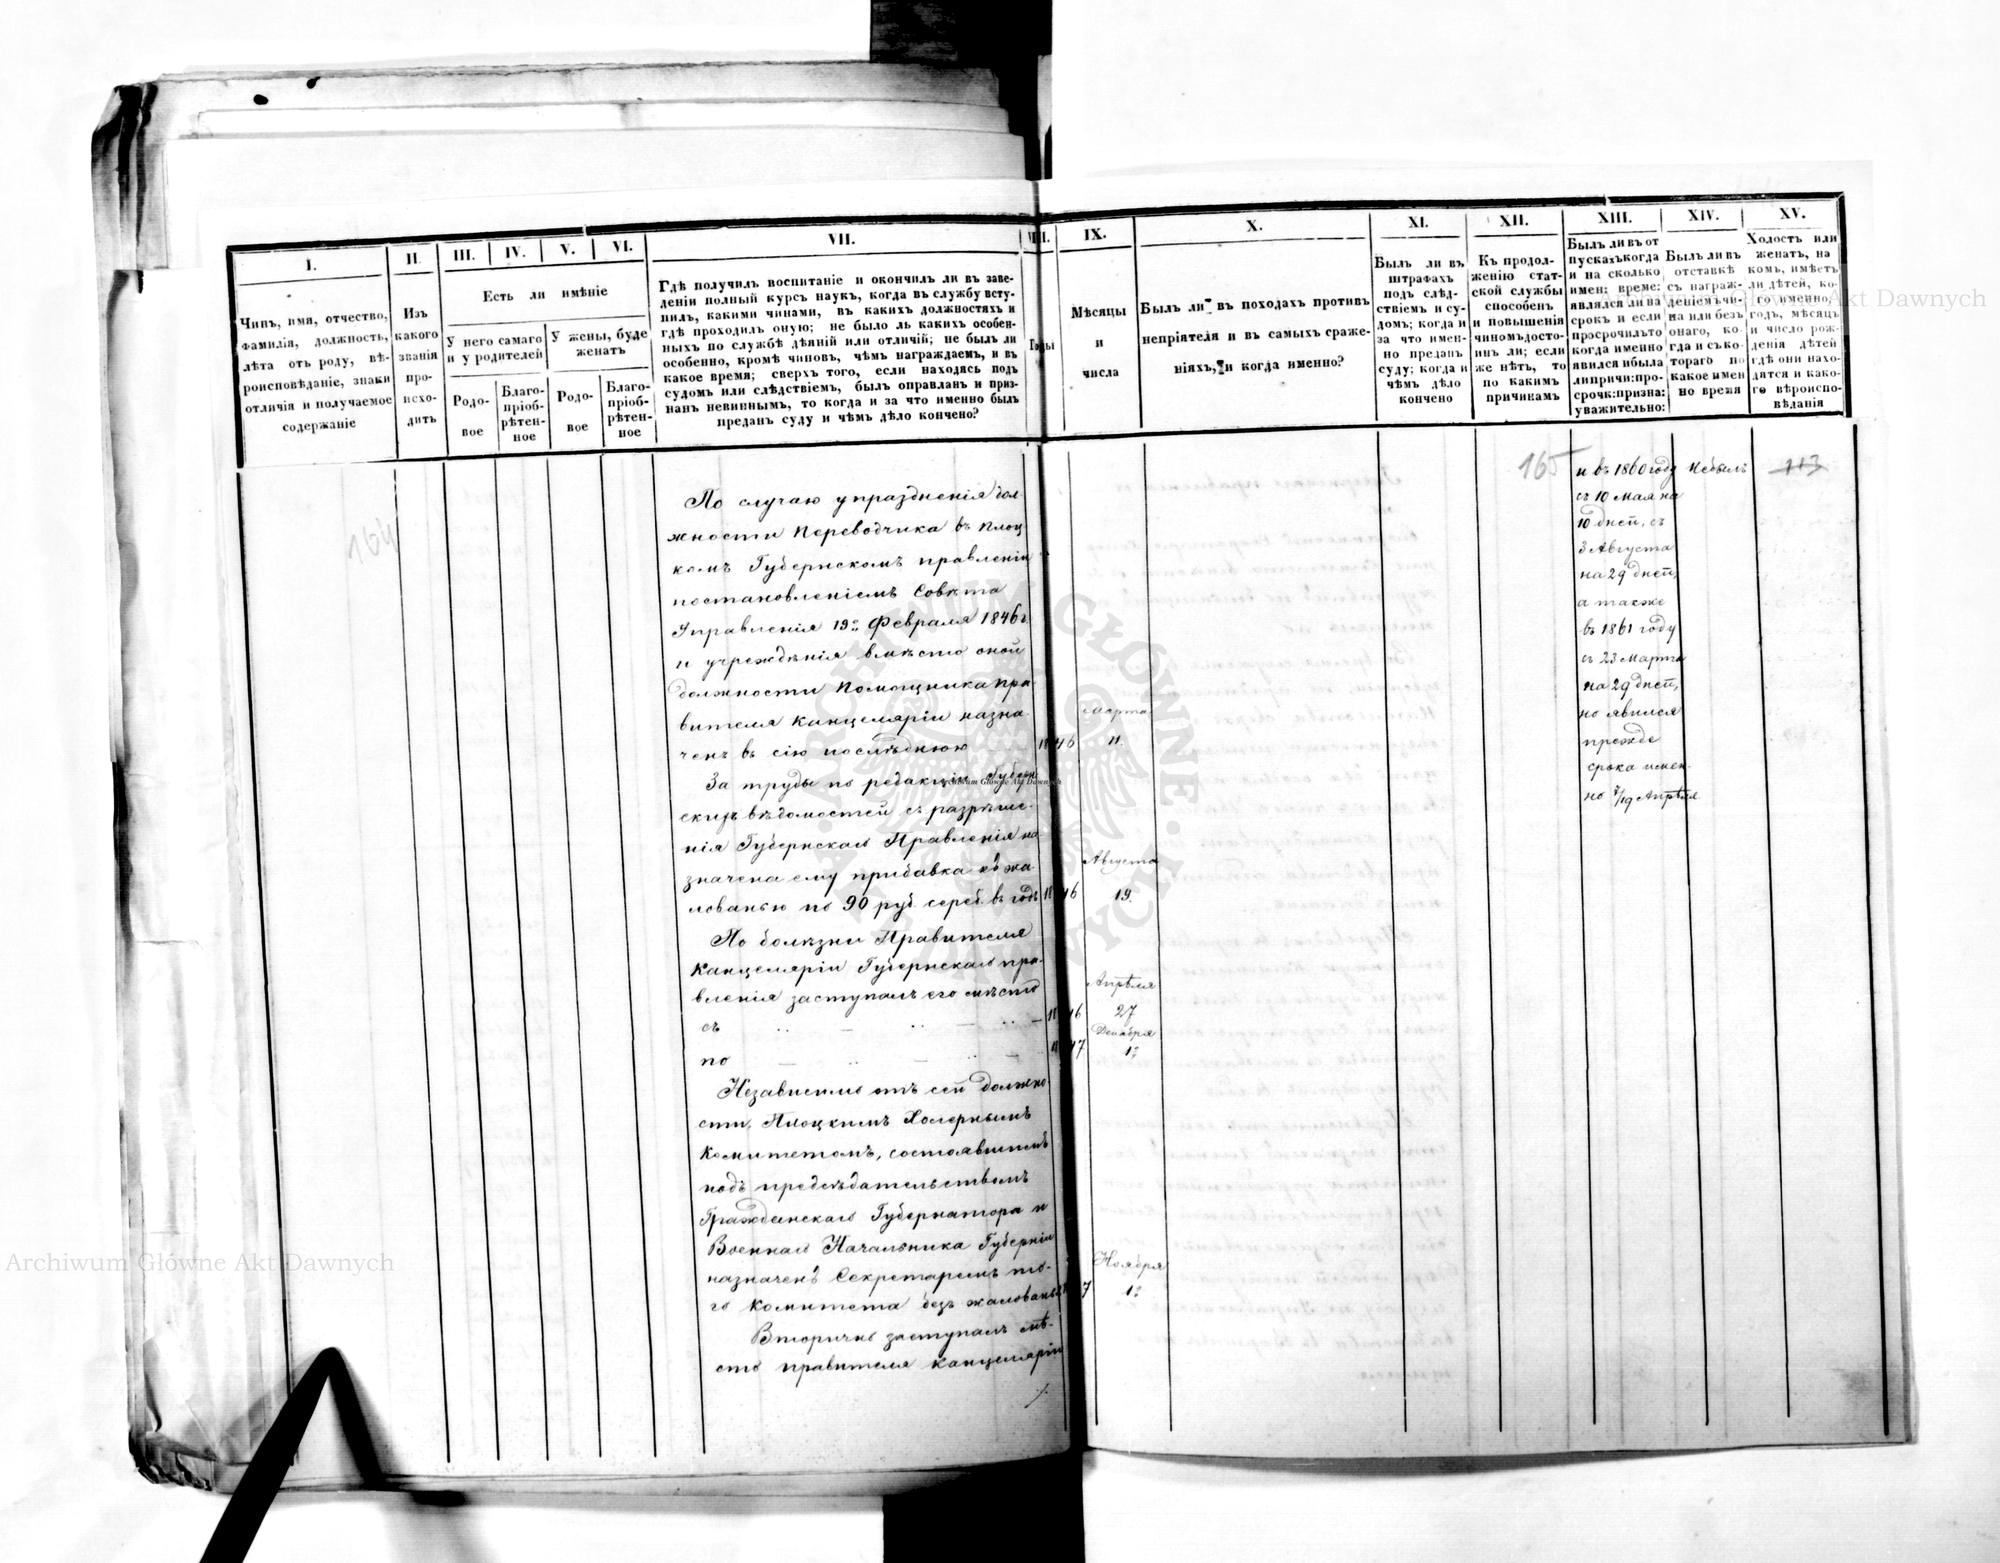 I.
Чинъ, имя, отчество,
фамилія, должность,
лѣта отъ роду, вѣ-
роисповѣданіе, знаки
отличія и получаемое
содержаніе
II.
Изъ
какого
званія
про-
исхо-
дитъ
III.
IV.
V.
VI.
Есть ли имѣніе
У него самаго
и у родителей
У жены, буде
женатъ
Родо-
вое
Благо-
пріоб-
рѣтен-
ное
Родо-
вое
Благо-
пріоб-
рѣтен-
ное
VII.
Гдѣ получилъ воспитаніе и окончилъ ли въ заве-
деніи полный курсъ наукъ, когда въ службу всту-
пилъ, какими чинами, въ какихъ должностяхъ и
гдѣ проходилъ оную; не было ль какихъ особен-
ныхъ по службѣ дѣяній или отличій; не былъ ли
особенно, кромѣ чиновъ, чѣмъ награждаемъ, и въ
какое время; сверхъ того, если находясь подъ
судомъ или слѣдствіемъ, былъ оправданъ и приз-
нанъ невиннымъ, то когда и за что именно былъ
преданъ суду и чѣмъ дѣло кончено?
IX.
Мѣсяцы
и
числа
X.
Былъ ли въ походахъ противъ
непріятеля и въ самыхъ сраже-
ніяхъ, и когда именно?
XI.
Былъ ли въ
штрафахъ
подъ слѣд-
ствіемъ и су-
домъ; когда и
за что имен-
но преданъ
суду; когда и
чѣмъ дѣло
кончено
XII.
Къ продол-
женію стат-
ской службы
способенъ
и повышенія
чиномъ досто-
инъ ли; если
же нѣтъ, то
по какимъ
причинамъ
XIII.
Былъ ли въ от
пускахъ когда
и на сколько
имен: време:
являлся ли на
срокъ и если
просрочилъ то
когда именно
явился и была
ли причи: про-
сроч: призна:
уважительно:
XIV.
Былъ ли въ
отставкѣ
съ награж-
деніемъ чи-
на или безъ
онаго, ко-
гда и съ ко-
тораго по
какое имен
но время
XV.
Холостъ или
женатъ, на
комъ, имѣетъ
ли дѣтей, ко-
го именно,
годъ, мѣсяцъ
и число рож-
денія дѣтей
гдѣ они нахо-
дятся и како-
го вѣроиспо-
вѣданія
164
По случаю упраздненія дол-
жности Переводчика въ Плоц
комъ Губернскомъ правленіи
постановленіемъ Совѣта
Управленія 19го Февраля 1846 г.
и учрежденія вмѣсто оной
должности Помощника Пра-
вителя Канцеляріи назна-
ченъ въ сію послѣднюю 1846
Марта
11.
За труды по редакціи Губерн
скихъ вѣдомостей съ разрѣше-
нія Губернскаго Правленія на-
значена ему прибавка къ жа-
лованью по 90 руб. сереб. въ годъ 1846
Августа
19.
По болѣзни Правителя
Канцеляріи Губернскаго пра-
вленія заступалъ его мѣсто
съ 1846
Апрѣля
27
по 1847
Декабря
1го
Независимо отъ сей должно-
сти, Плоцкимъ Холернымъ
Комитетомъ, состоявшимъ
подъ предсѣдательствомъ
Гражданскаго Губернатора и
Военнаго Начальника Губерніи
назначенъ Секретаремъ то-
го Комитета безъ жалованья
Ноября
1го
Вторично заступалъ мѣ-
сто правителя канцеляріи
165
и въ 1860 году
съ 10 Мая на
10 дней, съ
3 Августа
на 29 дней,
а также
въ 1861 году
съ 23 Марта
на 29 дней,
но явился
прежде
срока имен-
но 7/19 Апрѣля.
Не былъ
113
Archiwum Główne Akt Dawnych
Archiwum Główne Akt Dawnych
Archiwum Główne Akt Dawnych